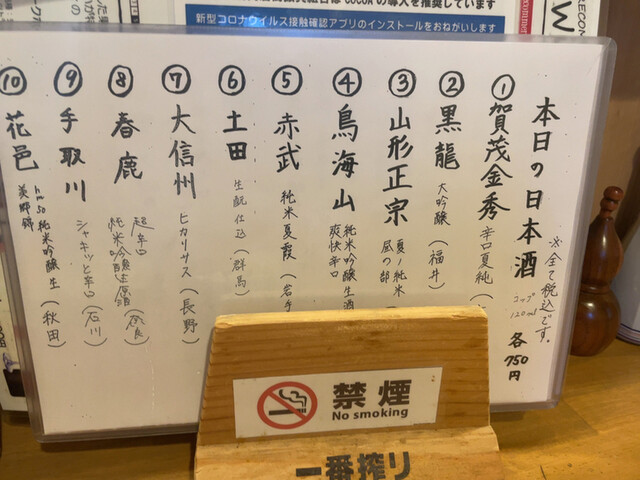 COCOAの導入を推奨しています
新型コロナウイルス接触確認アプリのインストールをおねがいします
本日の日本酒
※全て税込です。
コップ 120ml 各750円
① 賀茂金秀 辛口夏純
② 黒龍 大吟醸 (福井)
③ 山形正宗 夏ノ純米
④ 鳥海山 純米吟醸生酒 爽快辛口
⑤ 赤武 純米夏霞 (岩手
⑥ 土田 生酛仕込 (群馬)
⑦ 大信州 ヒカリサス (長野)
⑧ 春鹿 超辛口 純米吟醸生酒 (奈良)
⑨ 手取川 シャキッと辛口 (石川)
⑩ 花邑 美郷錦 純米吟醸生 (秋田)
禁煙
No smoking
一番搾り